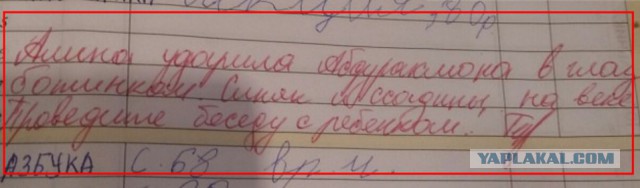 Алина ударила Абдурахмона в глаз
ботинком. Синяк и ссадины на веке
Проведите беседу с ребенком.
АЗБУКА с. 68 вр.ч.
YAPLAKAL.COM